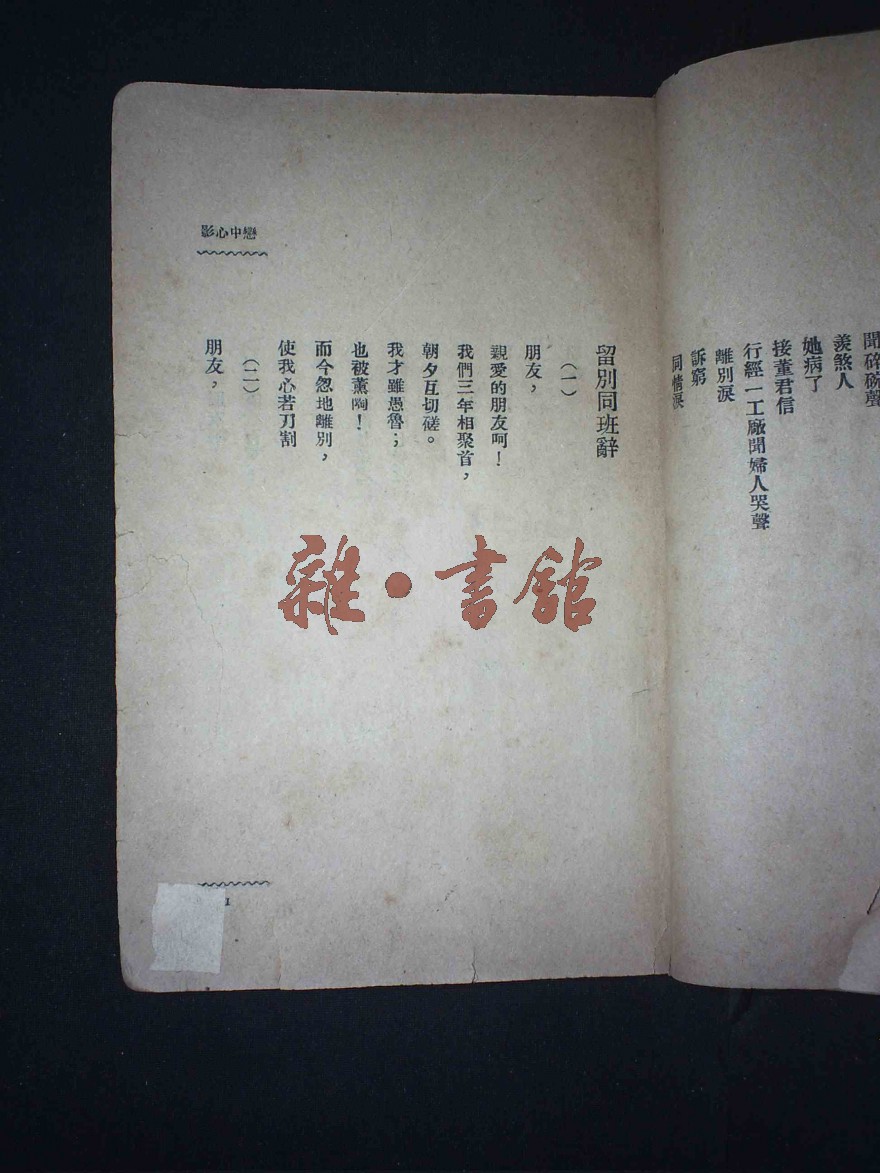 聞硌磅聲
羨煞人
她病了
接董君信
行經一工廠聞婦人哭聲
離別淚
訴窮
同情淚
戀中心影
留別同班辭
（一）
朋友，
親愛的朋友呵！
我們三年相聚首，
朝夕互切磋。
我才雖愚魯；
也被薰陶！
而今忽地離別，
使我心若刀割
（二）
朋友，
1
雜·書館